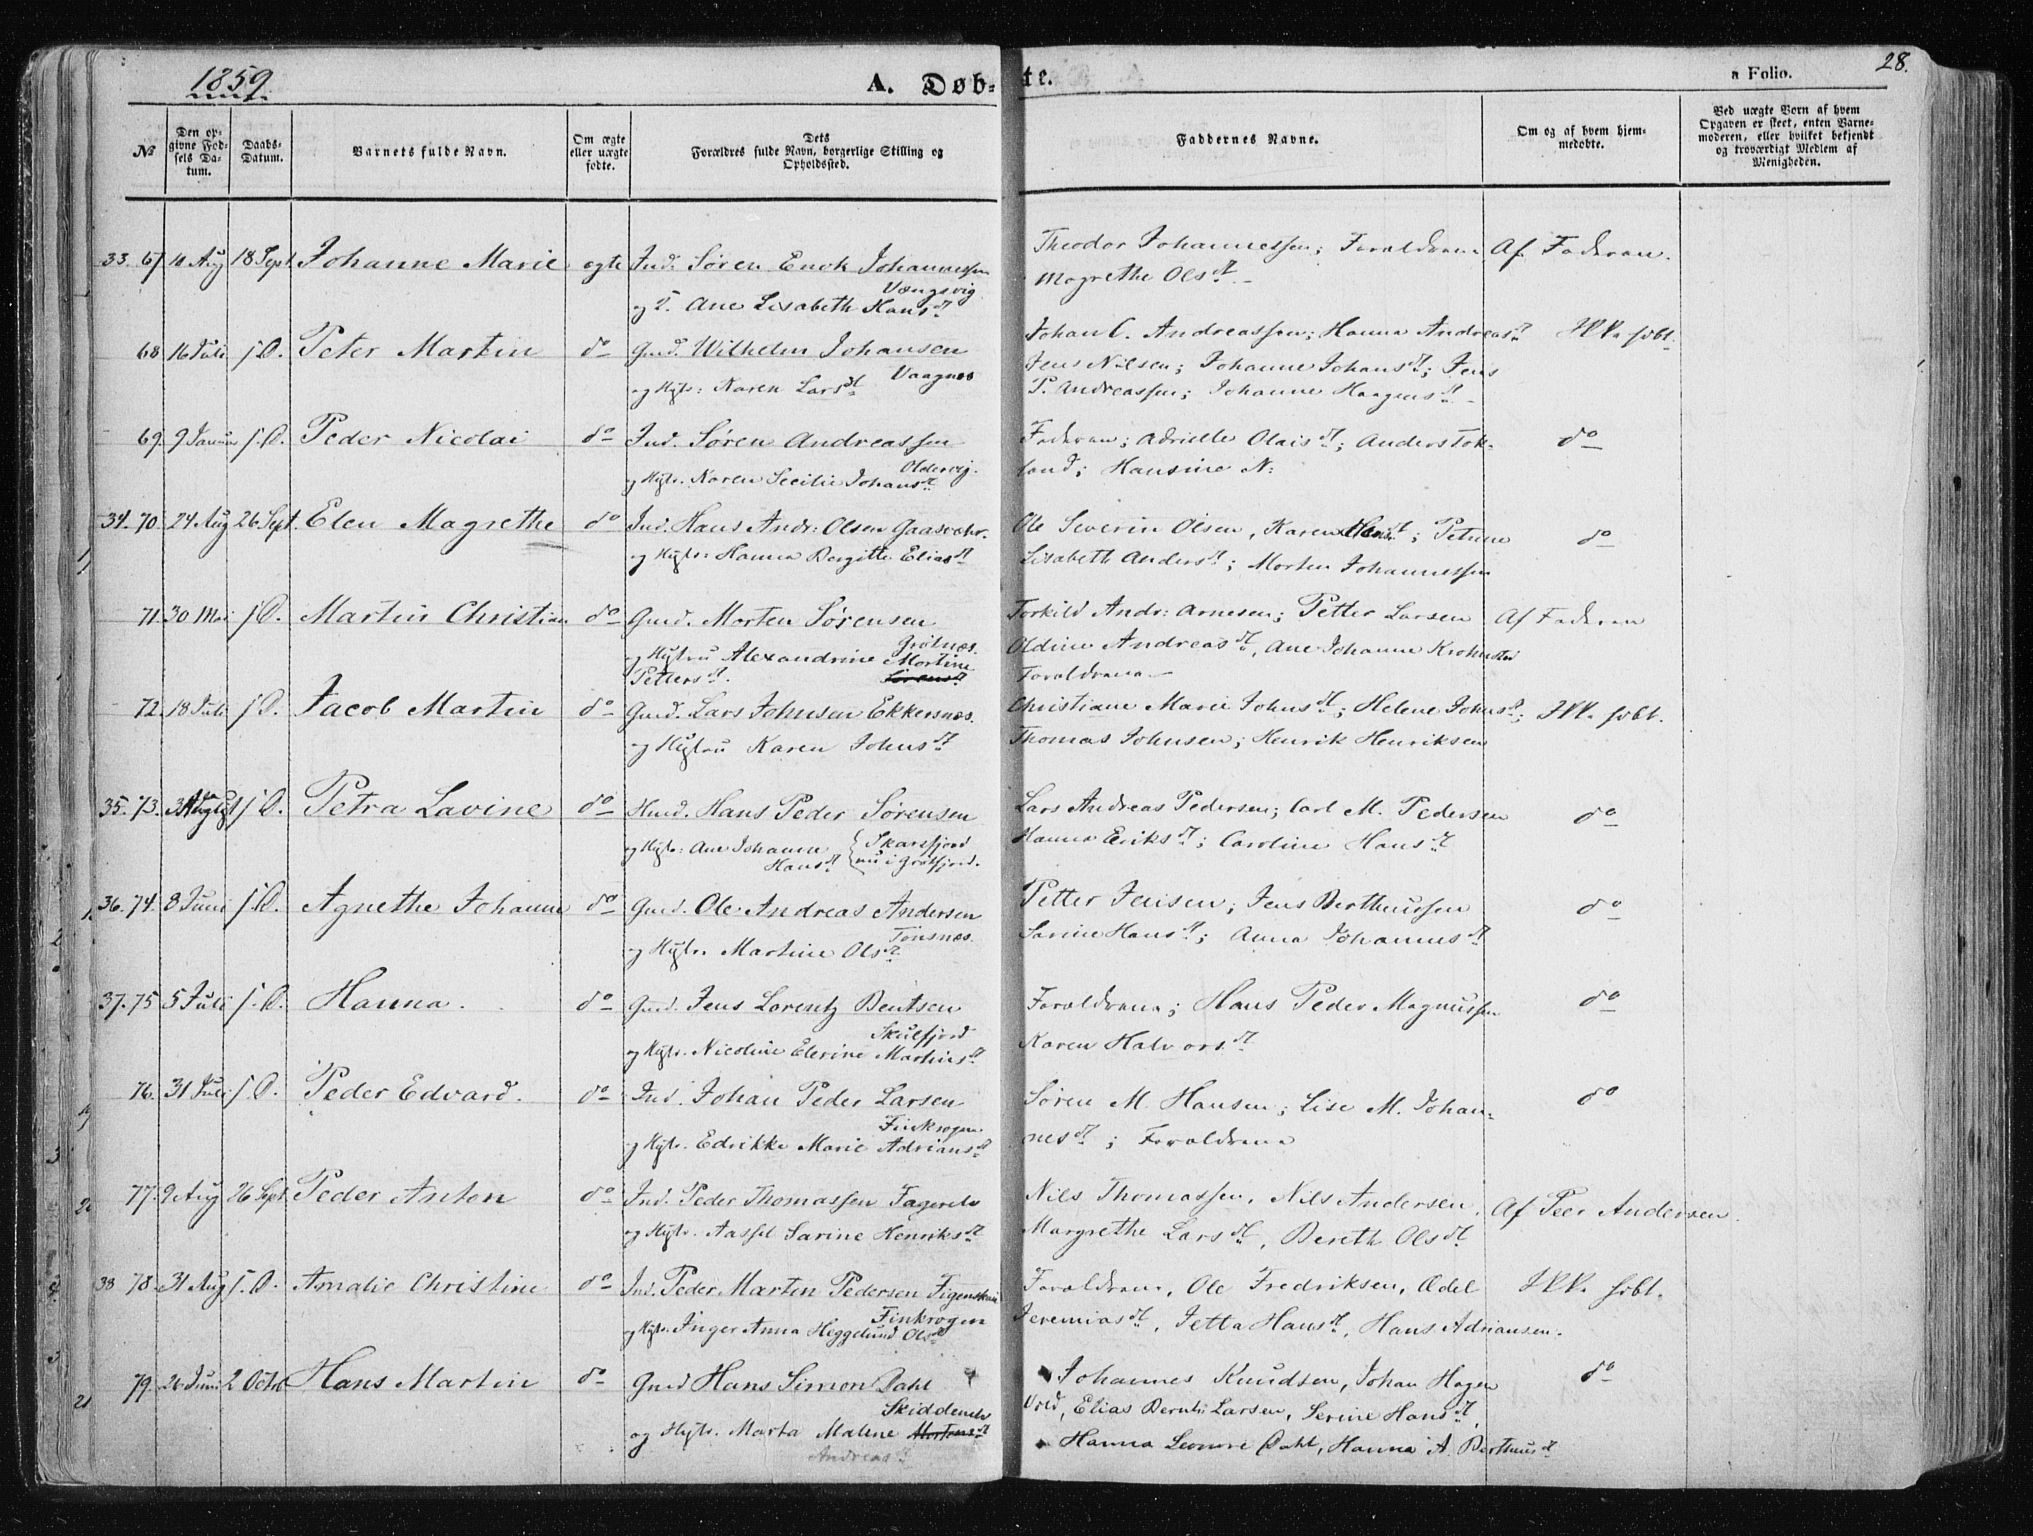 1859.
A. Døb-
te.
a Folio.
28.
No
Den op-
givne Fød-
sels Da-
tum.
Daabs-
Datum.
Barnets fulde Navn.
Om ægte
eller uægte
født.
Dets
Forældres fulde Navn, borgerlige Stilling og
Opholdssted.
Faddernes Navne.
Om og af hvem hjem-
medøbt.
Ved uægte Born af hvem
Opgaven er skeet, enten Barne-
moderen, eller hvilket bekjendt
og troværdigt Medlem af
Menigheden.
33. 67 Aug 18 Sept. Johanne Marie ægte Ind. Søren Enok Johannessen
Vængsvig
og Ane Lisabeth Hansdt.
Theodor Johannessen; Forældrene Af Faderen.
Magrethe Olsdt.
68 16 Juli s.D. Peter Martin do Gmd. Wilhelm Johansen
Vaagnes
og Hstr: Karen Larsdt
Johan C. Andreassen; Hanna Andreasdt Ikke døbt.
Jens Nilsen; Johanne Johansdt; Jens
P. Andreassen; Johanne Haagensdt.
69. 9 Januar s.D. Peder Nicolai do Ind. Søren Andreassen
Oldervig.
og Hstr. Karen Secilie Johansdt.
Faderen; Adrielle Olaisdt; Anders Tok-
land; Hansine N: do
34. 70. 24 Aug 26 Sept. Elen Magrethe do Ind. Hans Andr: Olsen Gaasvær.
og Hstr: Hanna Bergitte Eliasdt
Ole Severin Olsen, Karen Hansdt; Petrine
Lisabeth Andersdt; Morten Johannessen do
71. 30 Mai s.D. Martin Christian do Gmd. Morten Sørensen
Grøtnæs.
og Hustru Alexandrine Mortine
Pettersdt. Sørensdt
Torkild Andr: Arnesen; Petter Larsen Af Faderen
Oldine Andreasdt, Ane Johanne
Forældrene
72. 18 Juli s.D. Jacob Martin do Gmd. Lars Johnsen Ekkersnæs.
og Hustru Karen Johnsdt
Christiane Marie Johnsdt; Helene Johnsdt; Ikke døbt.
Thomas Johnsen; Henrik Henriksen
35. 73. s.D. Petra Lavine do Hmd. Hans Peder Sørensen
og Hstr: Ane Johanna Skarsfjord
Hansdt nu i Grøtfjord.
Lars Andreas Pedersen; Carl M. Pedersen
Hanna Eriksdt; Caroline Hansdt do
36. 74. 8 Juni s.D. Agnethe Johanne do Gmd. Ole Andreas Andersen
Tønsnæs.
og Hstr. Martine Olsdt
Petter Jensen; Jens Bertheussen
Sarine Hansdt; Anna Johannesdt do
37. 75 5 Juli s.D. Hanna. do Gmd. Jens Lorentz Bentsen
Skulfjord
og Hstr. Nicoline Elerine Martinsdt
Forældrene; Hans Peder Magnussen
Karen Halvorsdt do
76. 31 Juli s.D. Peder Edvard. do Ind. Johan Peder Larsen
Finkrogen
og Hstr. Edrikke Marie Adriansdt
Søren M. Hansen; Lise M. Johan-
nesdt; Forældrene do
77. 9 Aug 26 Sept. Peder Anton do Ind. Peder Thomassen Fagerelv
og Hstr. Aassel Sarine Henriksdt
Nils Thomassen, Nils Andersen, Af Peer Andersen.
Margrethe Larsdt, Bereth Olsdt
38 78. 31 Aug s.D. Amalie Christine do Ind. Peder Martin Pedersen Figenskau
Finkrogen
og Hstr. Inger Anna Heggelund Olsdt
Forældrene, Ole Fredriksen, Ædel Ikke døbt.
Jeremiasdt, Jetta Hansdt, Hans Adriansen.
79. 26 Juni 2 Octob Hans Martin do Gmd Hans Simon Dahl
Skiddenelv
og Hstr. Marta Malene Mortensdt
Andreasdt
Johannes Knudsen, Johan Hagen
Vold, Elias Bernt Larsen, Serine Hansdt,
Hanna Leonore Dahl, Hanna A. Bertheusdt do